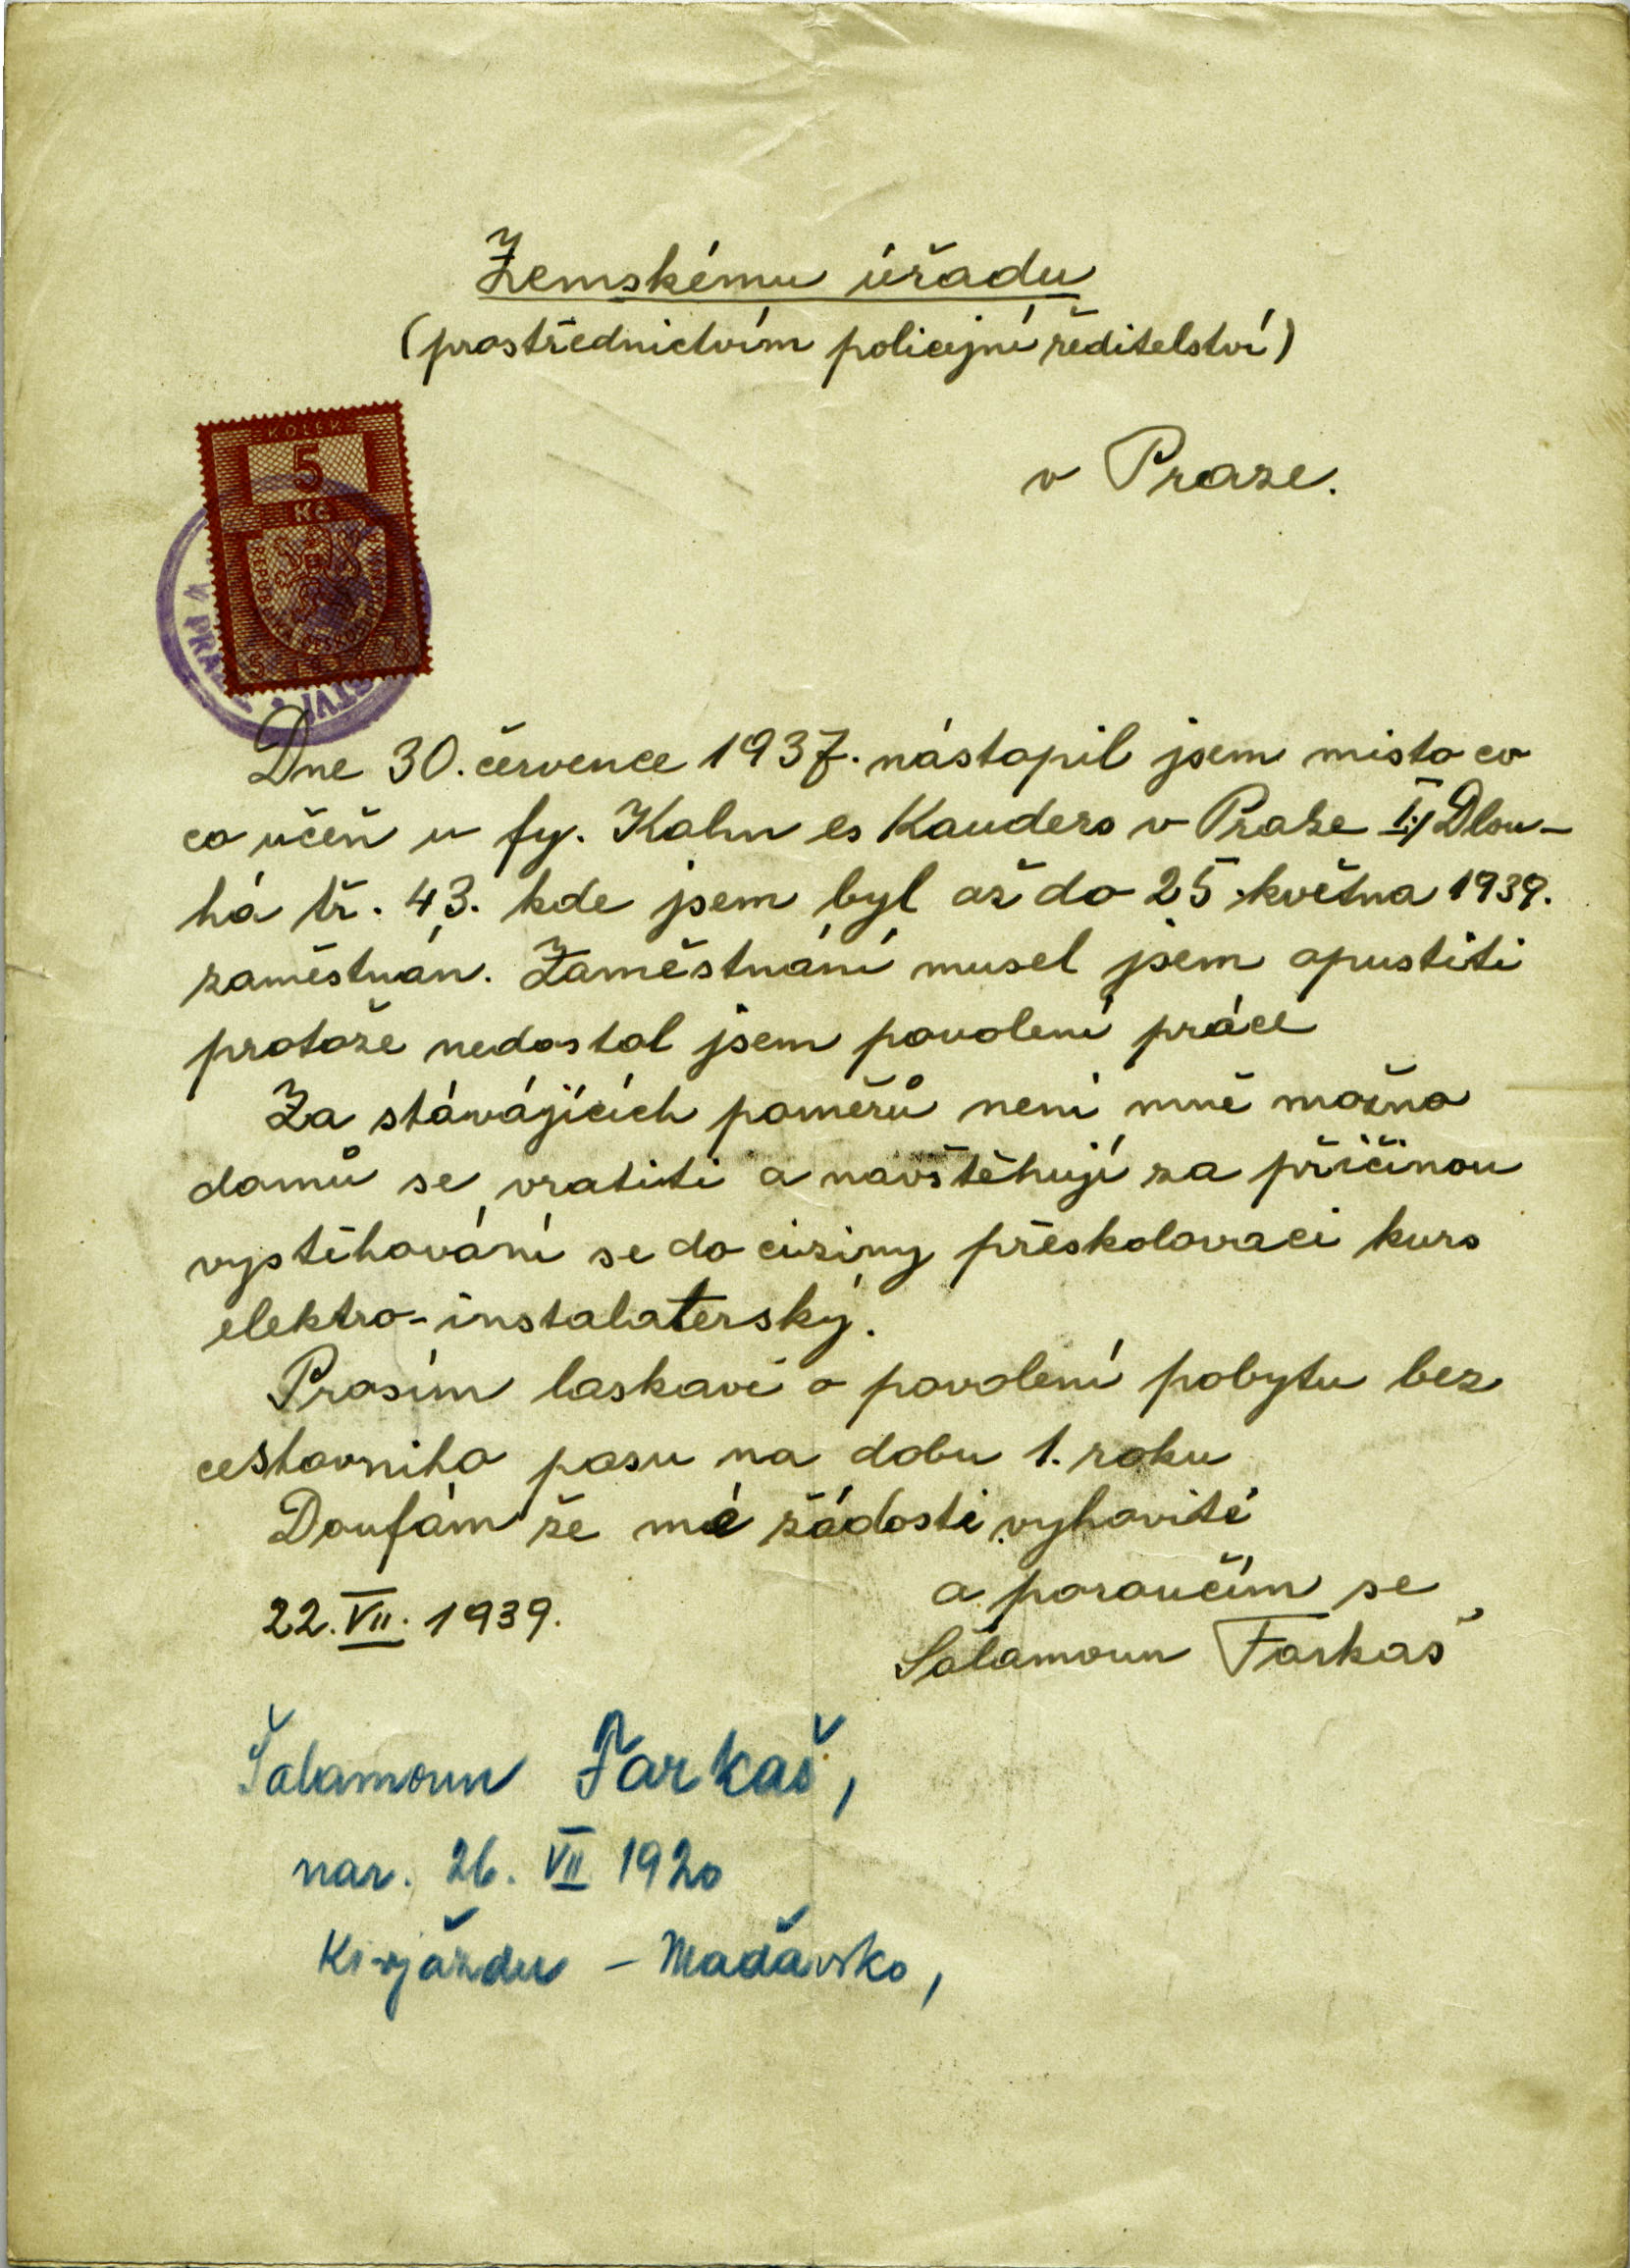 Zemskému úřadu
(prostřednictvím policejní ředitelství)
v Praze.
KOLEK
5
Kč
V PRAZE
Dne 30. července 1937. nástopil jsem misto co
co učeň u fy. Kahn es Kauders v Praze I.) Dlou-
há tř. 43. kde jsem byl až do 25 května 1939.
zaměstnán. Zaměstnání musel jsem opustiti
protože nedostal jsem povolení práce
Za stávájících poměrů neni mně možno
domů se vratiti a navštěhují za příčinou
vystěhování se do ciziny přeskolovaci kurs
elektro-instalaterský.
Prosím laskavě o povolení pobytu bez
cestovniho pasu na dobu 1. roku
Doufám že mé žádosti vyhovíté
a poroučím se
22. VII. 1939.
Šalamoun Farkaš
Šalamoun Farkaš,
nar. 26. VII 1920
– Maďarsko,